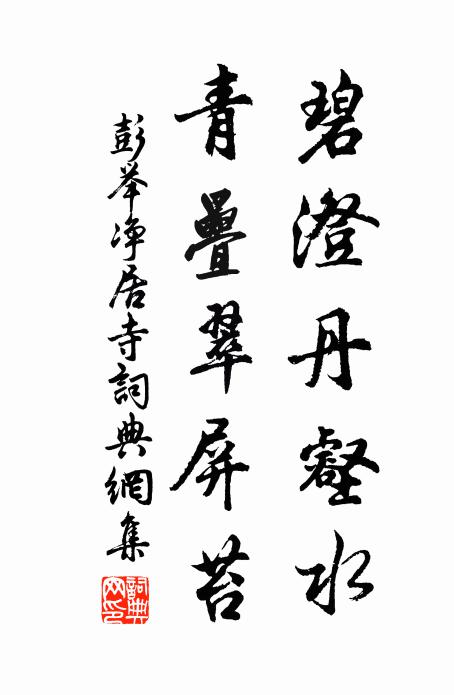 碧澄丹壑水
青疊翠屏苔
彭举净居寺詞典網集
詞典网印